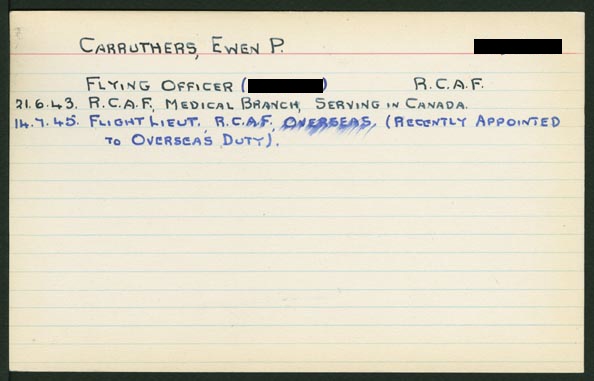 CARRUTHERS, EWEN P.
FLYING OFFICER ( ) R.C.A.F.
21.6.43. R.C.A.F, MEDICAL BRANCH, SERVING IN CANADA.
14.7.45. FLIGHT LIEUT., R.C.A.F. OVERSEAS, (RECENTLY APPOINTED
TO OVERSEAS DUTY).